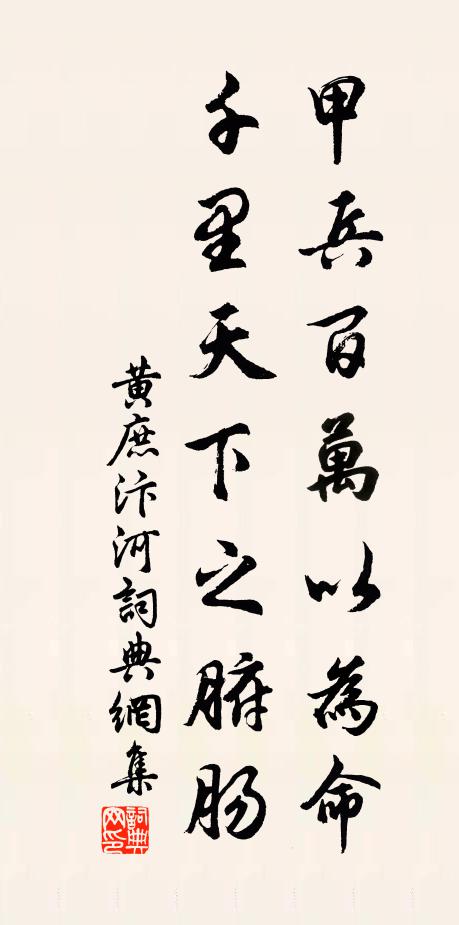 甲兵百萬以為命
千里天下之腑肠
黃庶汴河詞典網集
詞典網印